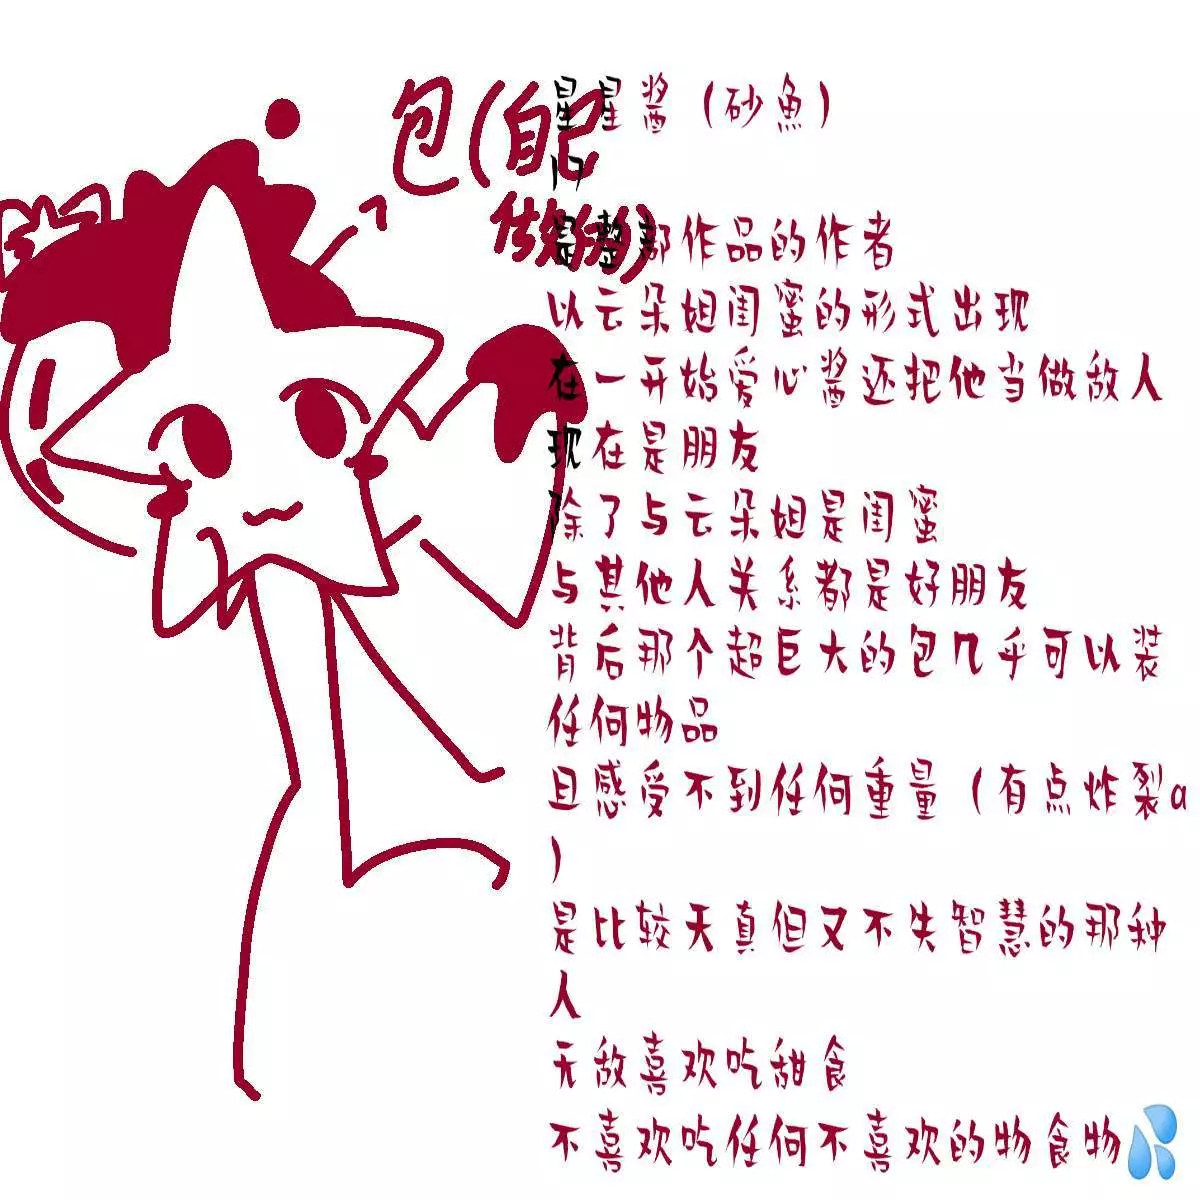 包(自己
做的)
星星酱（砂鱼）
17
是整部作品的作者
以云朵姐闺蜜的形式出现
在一开始爱心酱还把他当做敌人
现在是朋友
除了与云朵姐是闺蜜
与其他人关系都是好朋友
背后那个超巨大的包几乎可以装
任何物品
且感受不到任何重量（有点炸裂a
）
是比较天真但又不失智慧的那种
人
无敌喜欢吃甜食
不喜欢吃任何不喜欢的物食物💦